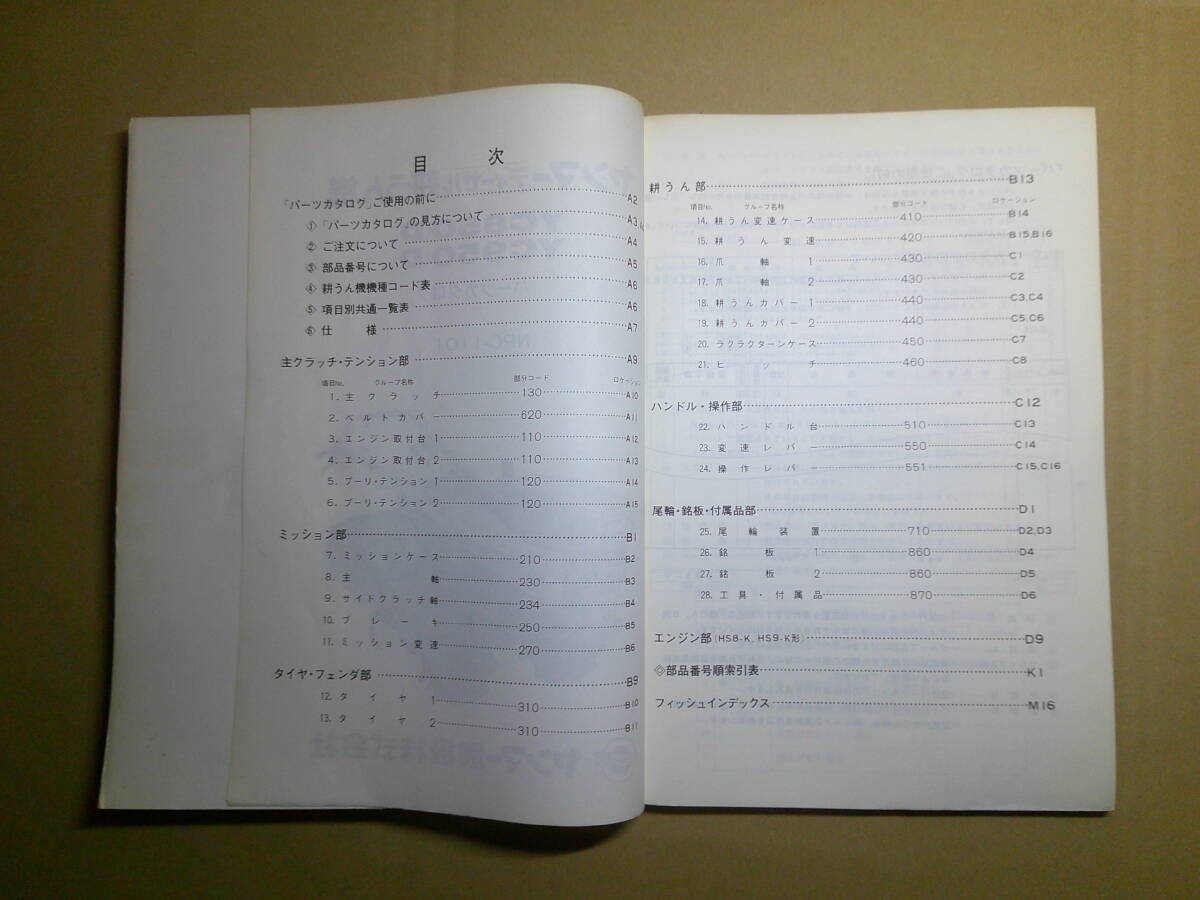 目次
「パーツカタログ」ご使用の前に A2
①「パーツカタログ」の見方について A3
② ご注文について A4
③ 部品番号について A5
④ 耕うん機機種コード表 A6
⑤ 項目別共通一覧表 A6
⑥ 仕様 A7
主クラッチ・テンション部 A9
項目No. グループ名称 部分コード ロケーション
1. 主クラッチ 130 A10
2. ベルトカバー 620 A11
3. エンジン取付台 1 110 A12
4. エンジン取付台 2 110 A13
5. プーリ・テンション 1 120 A14
6. プーリ・テンション 2 120 A15
ミッション部 B1
7. ミッションケース 210 B2
8. 主軸 230 B3
9. サイドクラッチ軸 234 B4
10. ブレーキ 250 B5
11. ミッション変速 270 B6
タイヤ・フェンダ部 B9
12. タイヤ 1 310 B10
13. タイヤ 2 310 B11
耕うん部 B13
項目No. グループ名称 部分コード ロケーション
14. 耕うん変速ケース 410 B14
15. 耕うん変速 420 B15,B16
16. 爪軸 1 430 C1
17. 爪軸 2 430 C2
18. 耕うんカバー 1 440 C3,C4
19. 耕うんカバー 2 440 C5,C6
20. ラクラクターンケース 450 C7
21. ヒッチ 460 C8
ハンドル・操作部 C12
22. ハンドル台 510 C13
23. 変速レバー 550 C14
24. 操作レバー 551 C15,C16
尾輪・銘板・付属品部 D1
25. 尾輪装置 710 D2,D3
26. 銘板 1 860 D4
27. 銘板 2 860 D5
28. 工具・付属品 870 D6
エンジン部(HS8-K, HS9-K形) D9
◇部品番号順索引表 K1
フィッシュインデックス M16